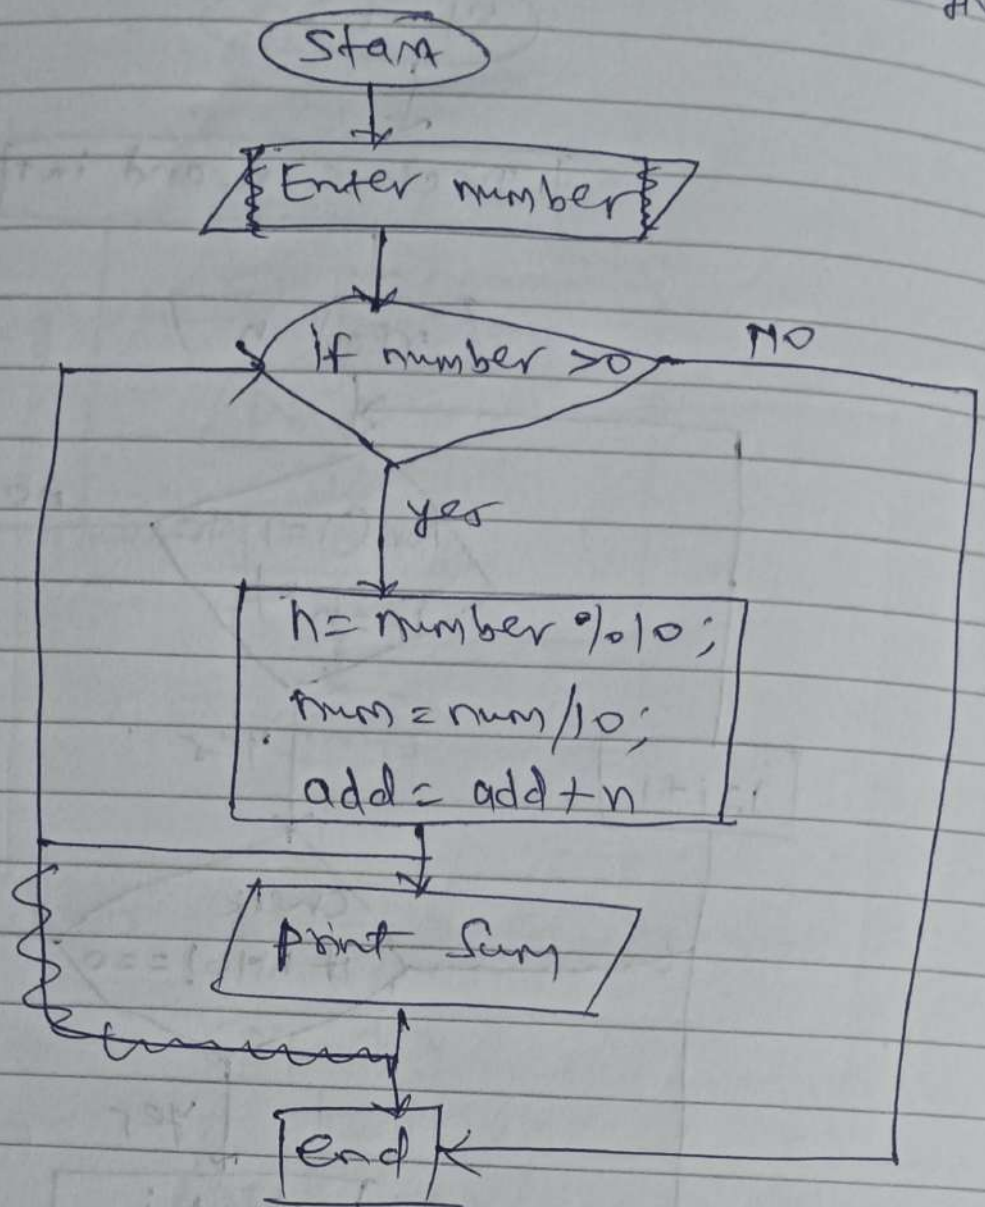 Start
Enter number
if number >0
NO
yes
n= number %10;
num = num/10;
add = add+n
print Sum
end